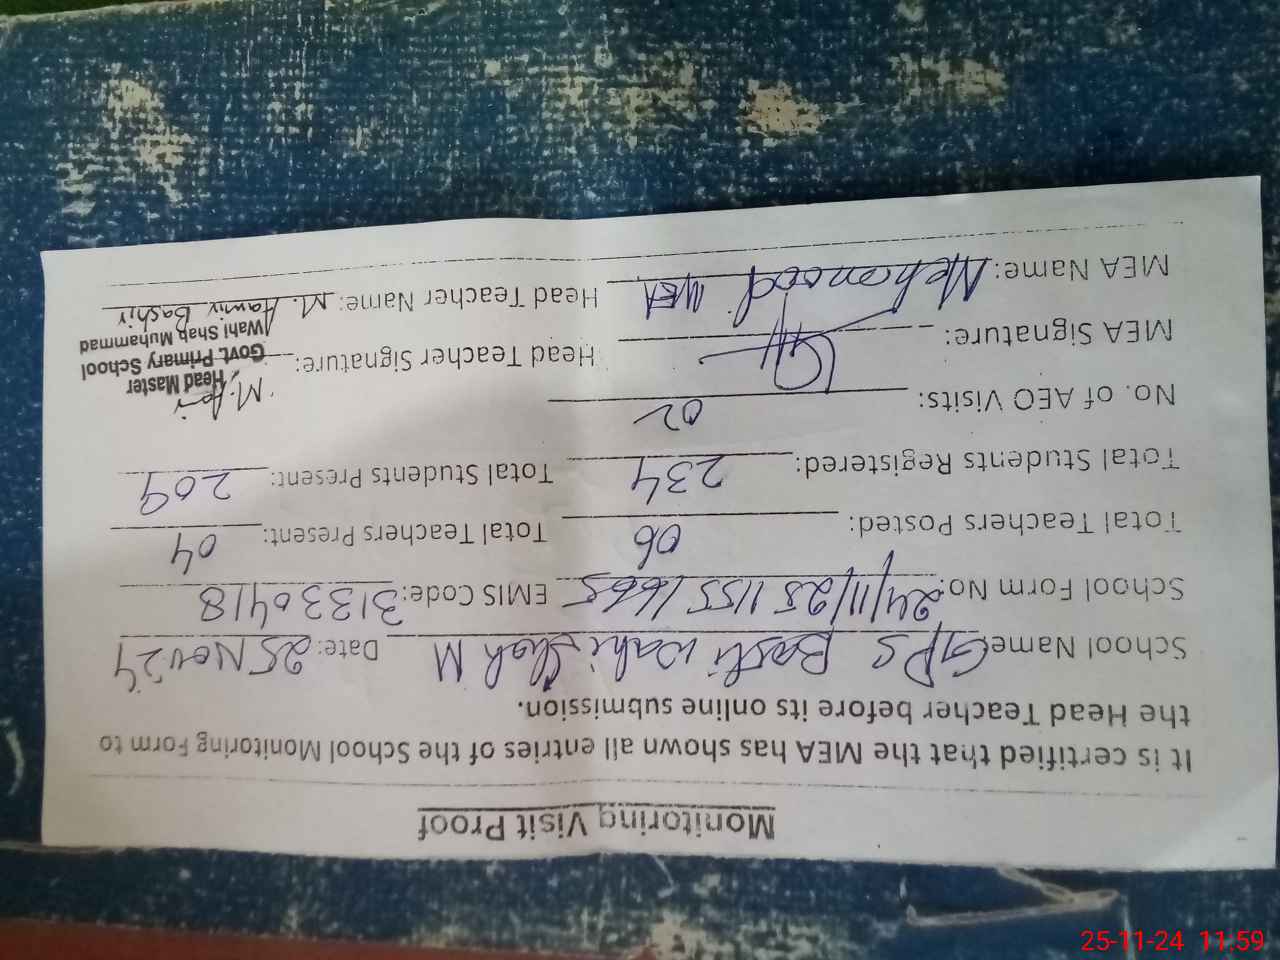 Monitoring Visit Proof
It is certified that the MEA has shown all entries of the School Monitoring Form to
the Head Teacher before its online submission.
School Name GPS Basti wahi Shah M Date: 25 Nov 24
School Form No: 24/11/25 1155 1665 EMIS Code: 31330418
Total Teachers Posted: 06 Total Teachers Present: 04
Total Students Registered: 234 Total Students Present: 209
No. of AEO Visits: 02
MEA Signature: Head Teacher Signature:
Head Master
Govt. Primary School
Wahi Shah Muhammad
MEA Name: Mehmood MEA Head Teacher Name: M. Bashir
25-11-24 11:59